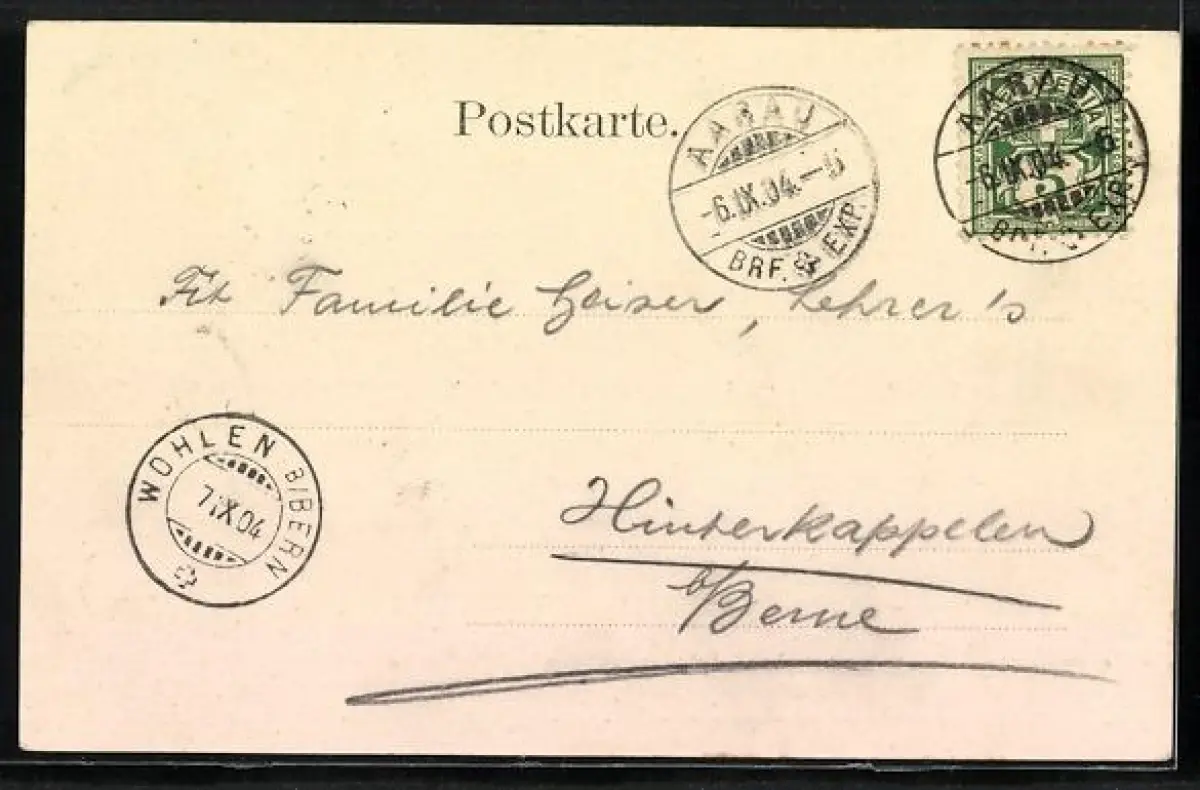 Postkarte.
AARAU
-6.IX.04.-
BRF. EXP.
HELVETIA
5
AARAU
-6.IX.04.-6
BRF. EXP.
Familie Geiser, Lehrer's
WOHLEN B/BERN
7.IX.04
Hinterkappelen
b/Berne